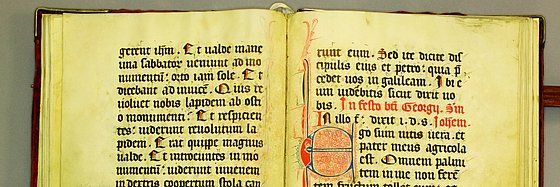 gerent ihm. Et ualde mane
una sabbatoꝝ ueniunt ad mo
numentū: orto iam sole. Et
dicebant ad inuicē. Quis re
uoluet nobis lapidem ab osti
o monumenti? Et respicien
tes: uiderunt reuolutum la
pidem. Erat quippe magnus
ualde. Et introeuntes in mo
numentū: uiderunt iuuenem
in dextris coopertum stola can
runt eum. Sed ite dicite dis
cipulis eius et petro: quia p̄
cedet uos in galileam. Ibi e
um uidebitis sicut dixit uo
bis. In festo bti Georgij. Scdm
In illo t̄: dixit i. d. s. Iohem.
Ego sum uitis uera. et
pater meus agricola
est. Omnem palmi
tem in me non ferēt
tem fructum tollet eum et